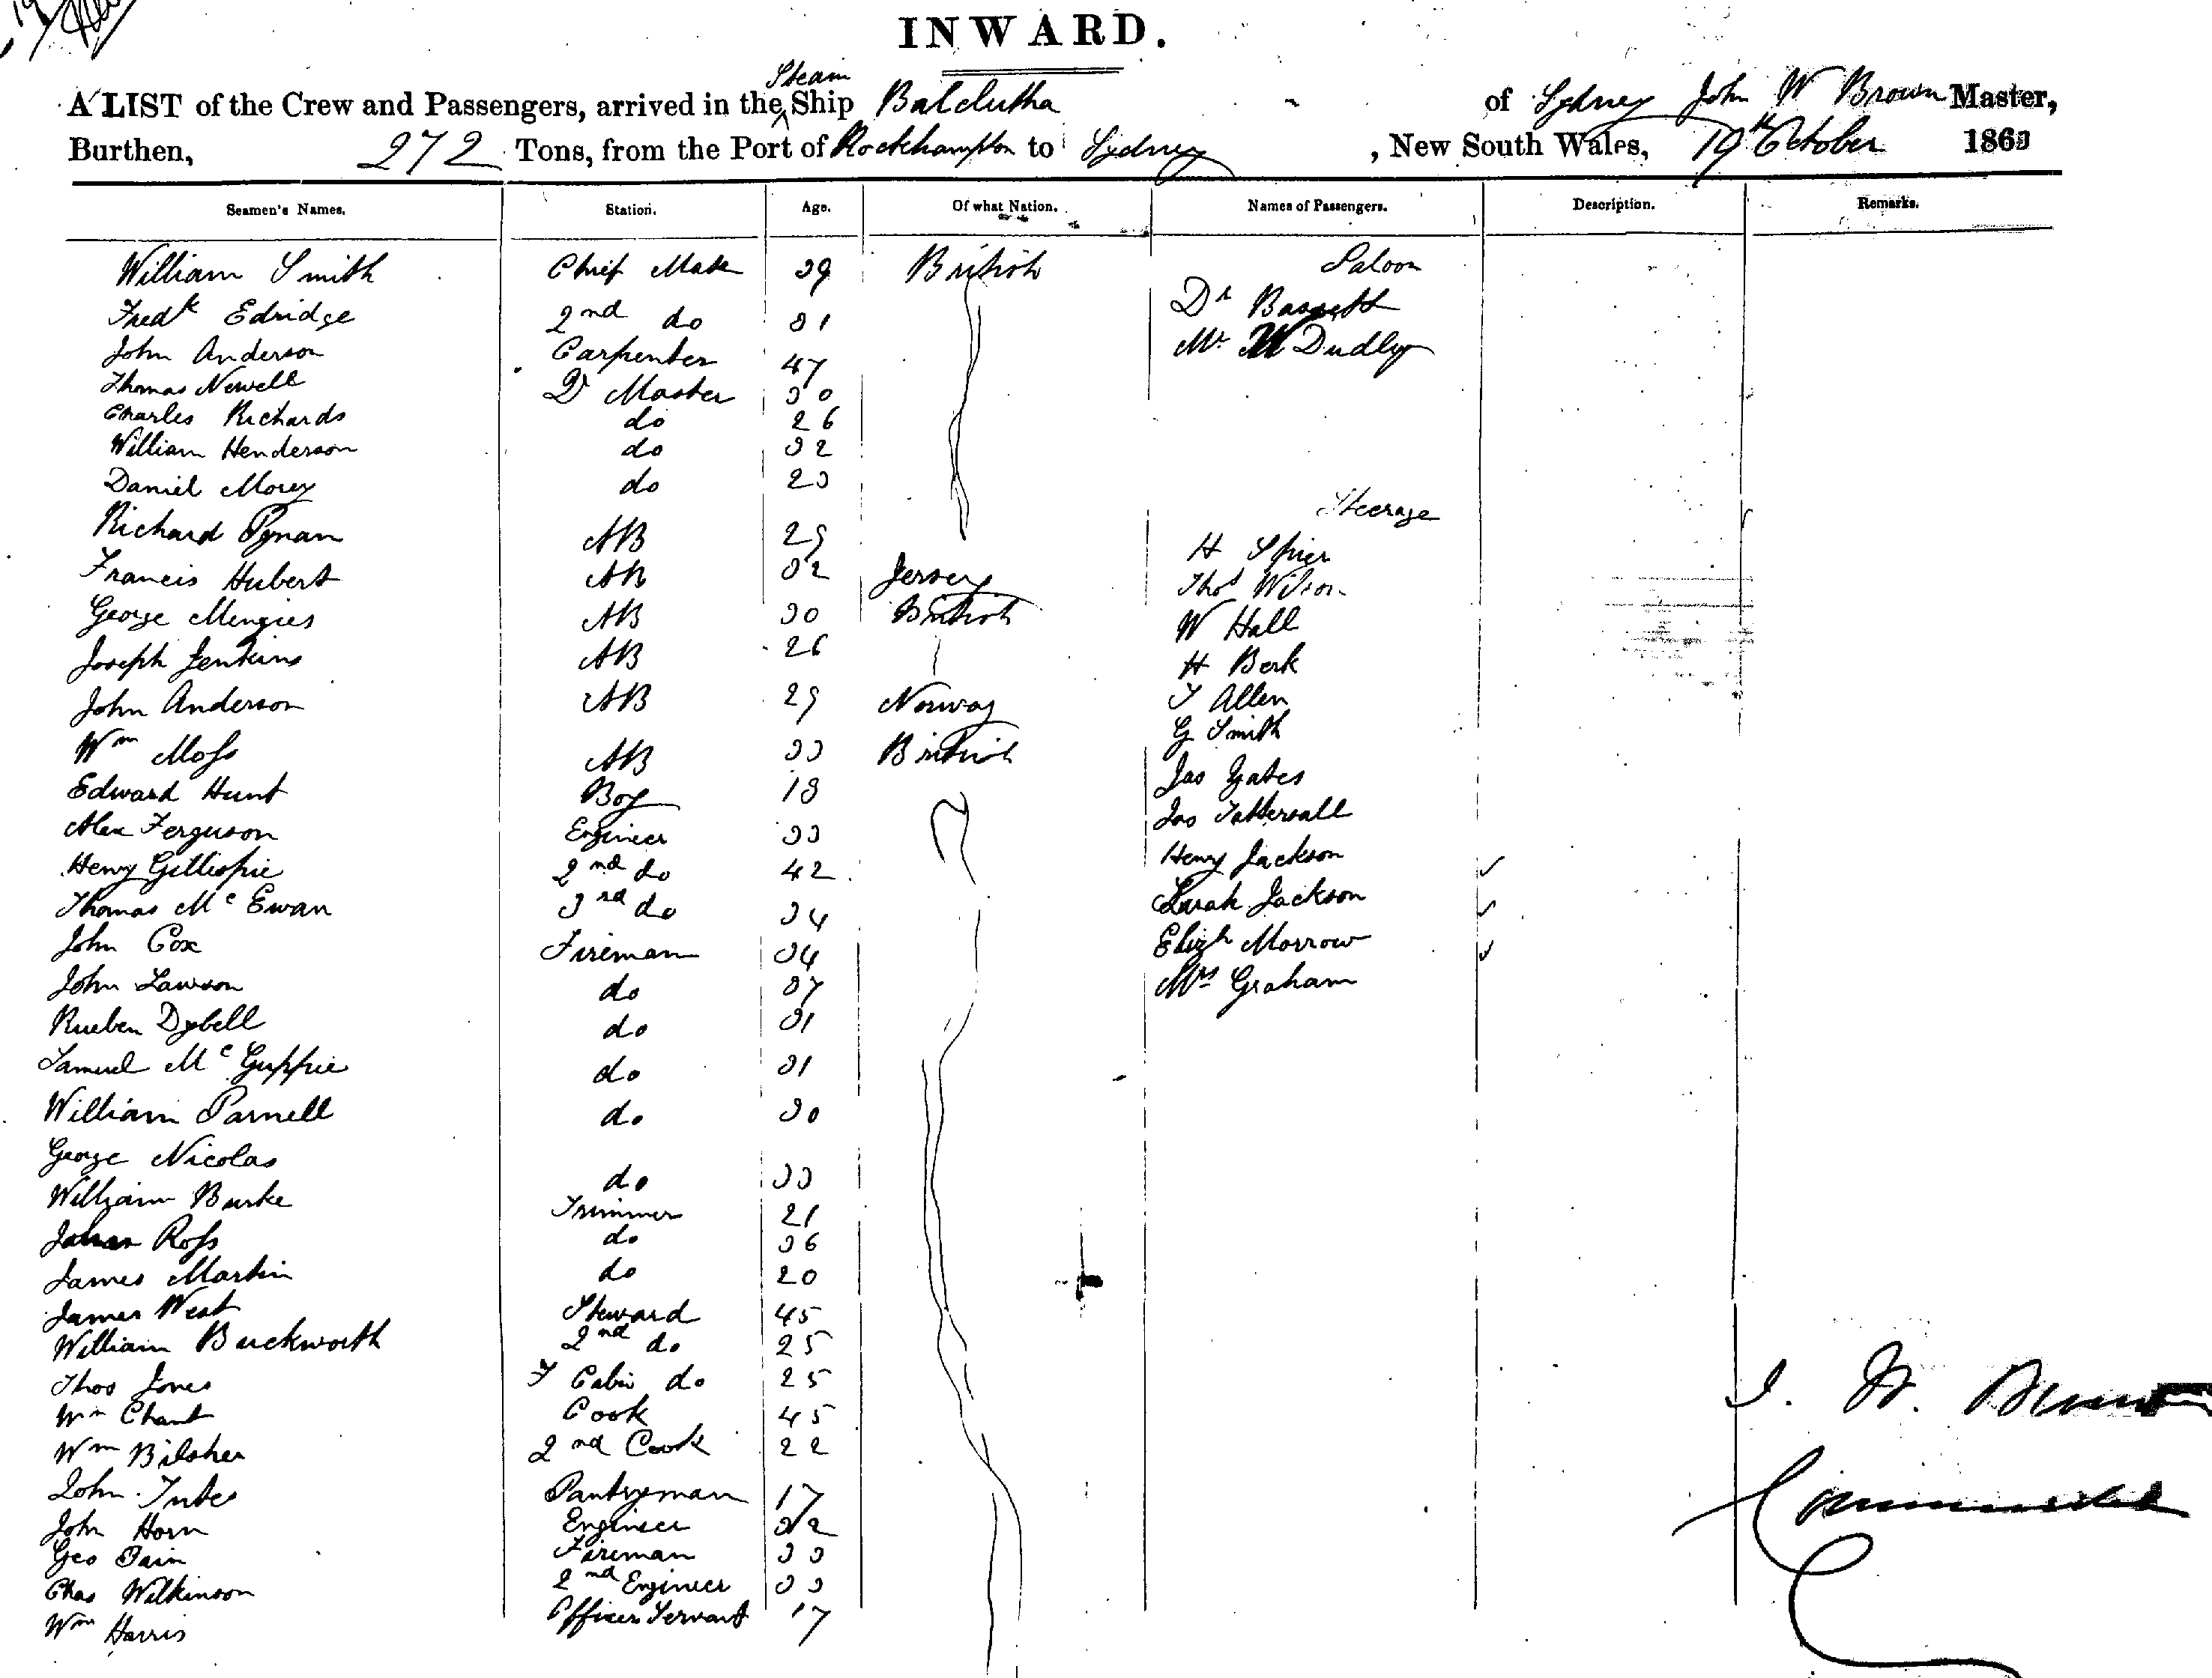 INWARD.
Steam
A LIST of the Crew and Passengers, arrived in the Ship Balclutha of Sydney John W Brown Master,
Burthen, 272 Tons, from the Port of Rockhampton to Sydney, New South Wales, 19th October 1863
Seamen's Names. Station. Age. Of what Nation. Names of Passengers. Description. Remarks.
William Smith Chief Mate 39 British Saloon
Fredk Edridge 2nd do 31 Dr Bassett
John Anderson Carpenter 47 Mr W Dudley
Thomas Newell Qr Master 30
Charles Richards do 26
William Henderson do 32
Daniel Morey do 23
Steerage
Richard Pynan AB 29 H Spier
Francis Hubert AB 32 Jersey Thos Wilson
George Menzies AB 30 British W Hall
Joseph Jenkins AB 26 H Berk
John Anderson AB 29 Norway T Allen
G Smith
Wm Moss AB 33 British Jas Yates
Edward Hunt Boy 18 Jas Tattersall
Alex Ferguson Engineer 33
Henry Gillespie 2nd do 42 Henry Jackson
Thomas McEwan 3rd do 34 Sarah Jackson
John Cox Fireman 34 Elizh Morrow
John Lawson do 37 Mrs Graham
Rueben Dybell do 31
Samuel McGuffie do 31
William Parnell do 30
George Nicolas do 33
William Burke Trimmer 21
Ross do 36
James Martin do 20
James West Steward 45
William Buckworth 2nd do 25
Thos Jones F Cabin do 25
Wm Chant Cook 45
Wm Bilsher 2nd Cook 22
John Tubes Pantryman 17
John Horn Engineer 32
Geo Pain Fireman 33
Chas Wilkinson 2nd Engineer 33
Wm Harris Officers Servant 17
J. W. Brown
Commander